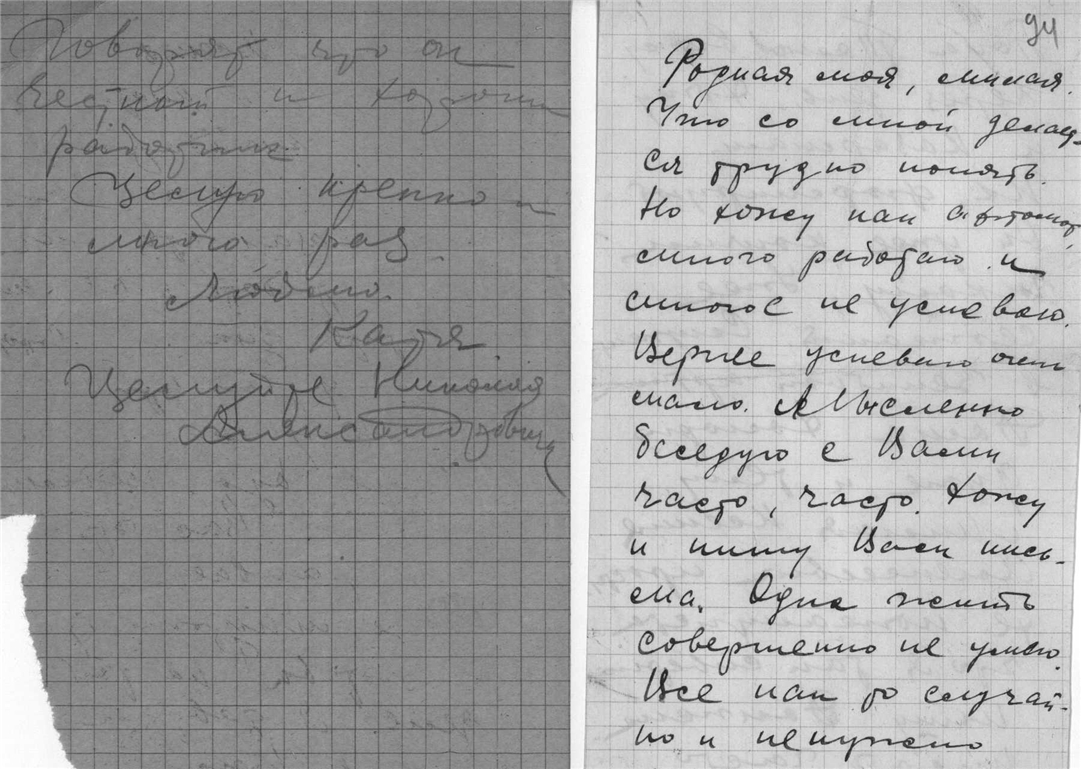 Говорят что он
честный и хороший
работник.
Целую крепко и
много раз.
Люблю.
Катя
Целуйте Николая
Александровича
94
Родная моя, милая.
Что со мной делает-
ся трудно понять.
Но хожу как автомат,
много работаю и
многое не успеваю.
Вернее успеваю очень
мало. Мысленно
беседую с Вами
часто, часто. Хожу
и пишу Вам пись-
ма. Одна жить
совершенно не умею.
Все как то случай-
но и ненужно